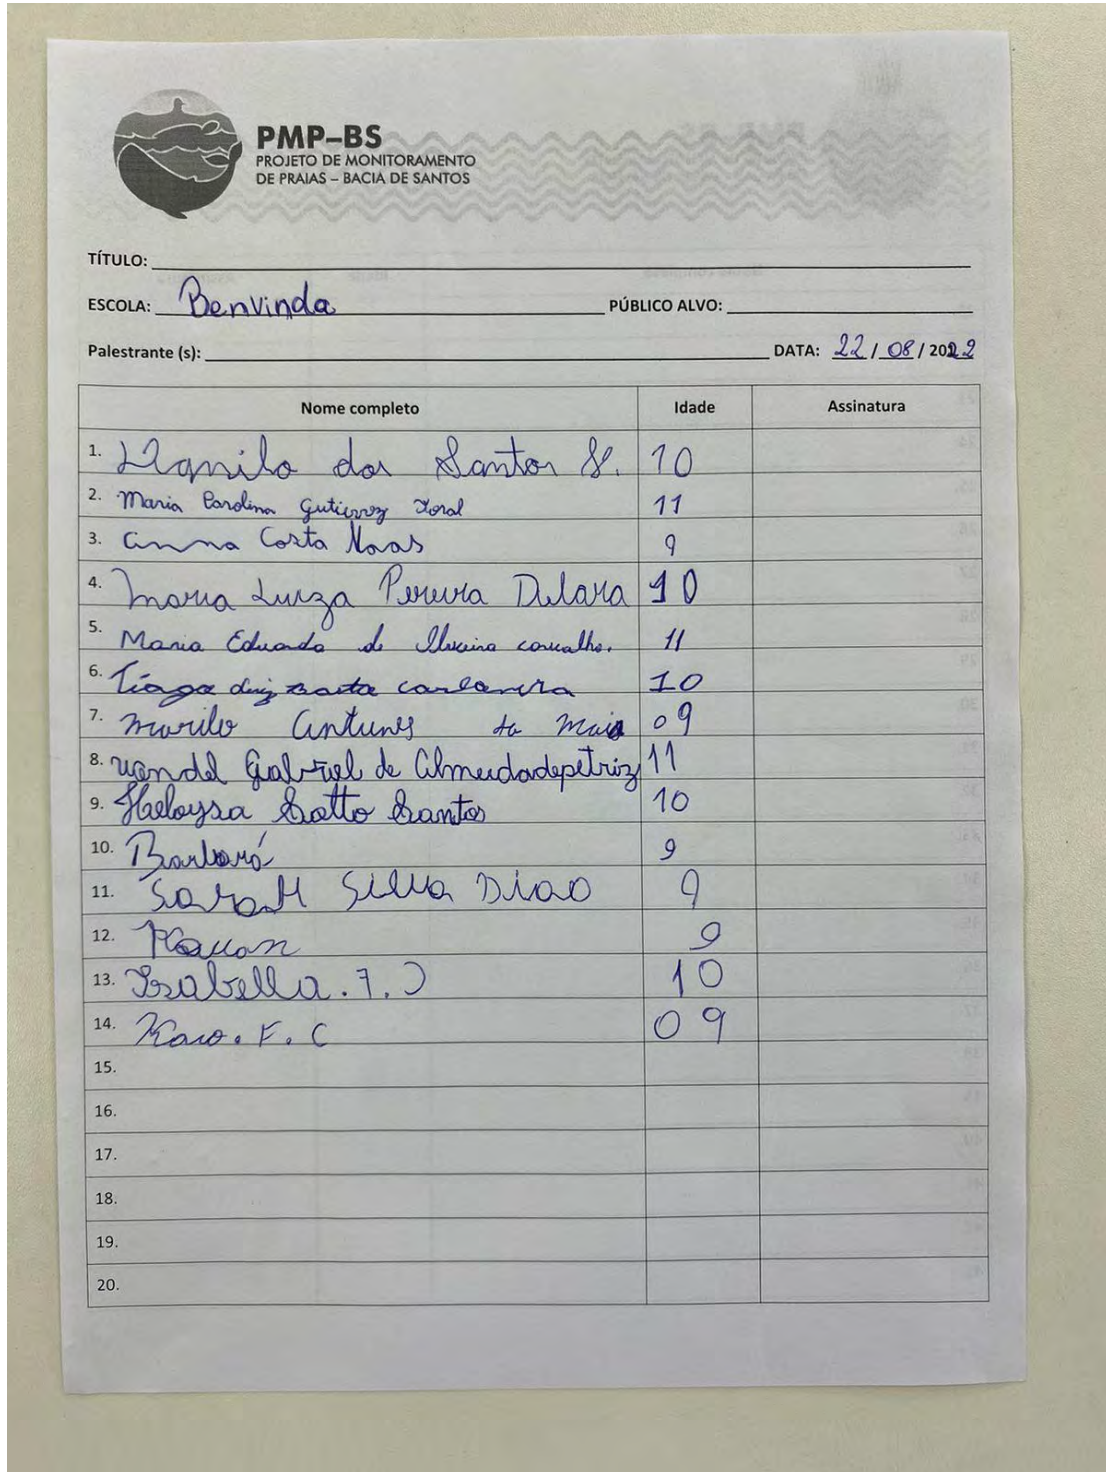 PMP-BS
PROJETO DE MONITORAMENTO
DE PRAIAS – BACIA DE SANTOS
TÍTULO:
ESCOLA: Benvinda PÚBLICO ALVO:
Palestrante (s): DATA: 22/08/2022
Nome completo Idade Assinatura
1. Danilo dos Santos S. 10
2. Maria Carolina Gutierrez Toral 11
3. Anna Costa 9
4. Maria Luiza Pereira Delara 10
5. Maria Eduarda de Oliveira carvalho. 11
6. Tiago Luiz 10
7. Murilo Antunes da Maia 09
8. Gabriel de Almeidadepetriz 11
9. Heloysa Satto Santos 10
10. Barbará 9
11. SaraH SILVA 9
12. Kauan 9
13. Isabella. 10
14. F. C 09
15.
16.
17.
18.
19.
20.